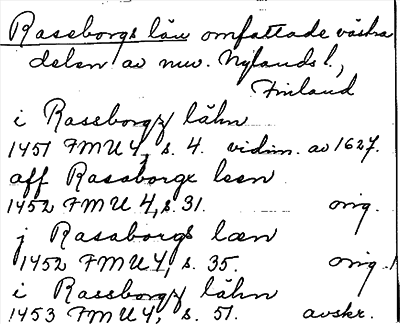 Raseborgs län omfattade västra
delen av nuv. Nylands l.,
Finland
i Rassborgz lähn
1451 FMU 4, s. 4. vidim. av 1627.
aff Rasaborge leen
1452 FMU 4, s. 31. orig.
j Rasaborgs læn
1452 FMU 4, s. 35. orig.
i Rassborgz lähn
1453 FMU 4, s. 51. avskr.